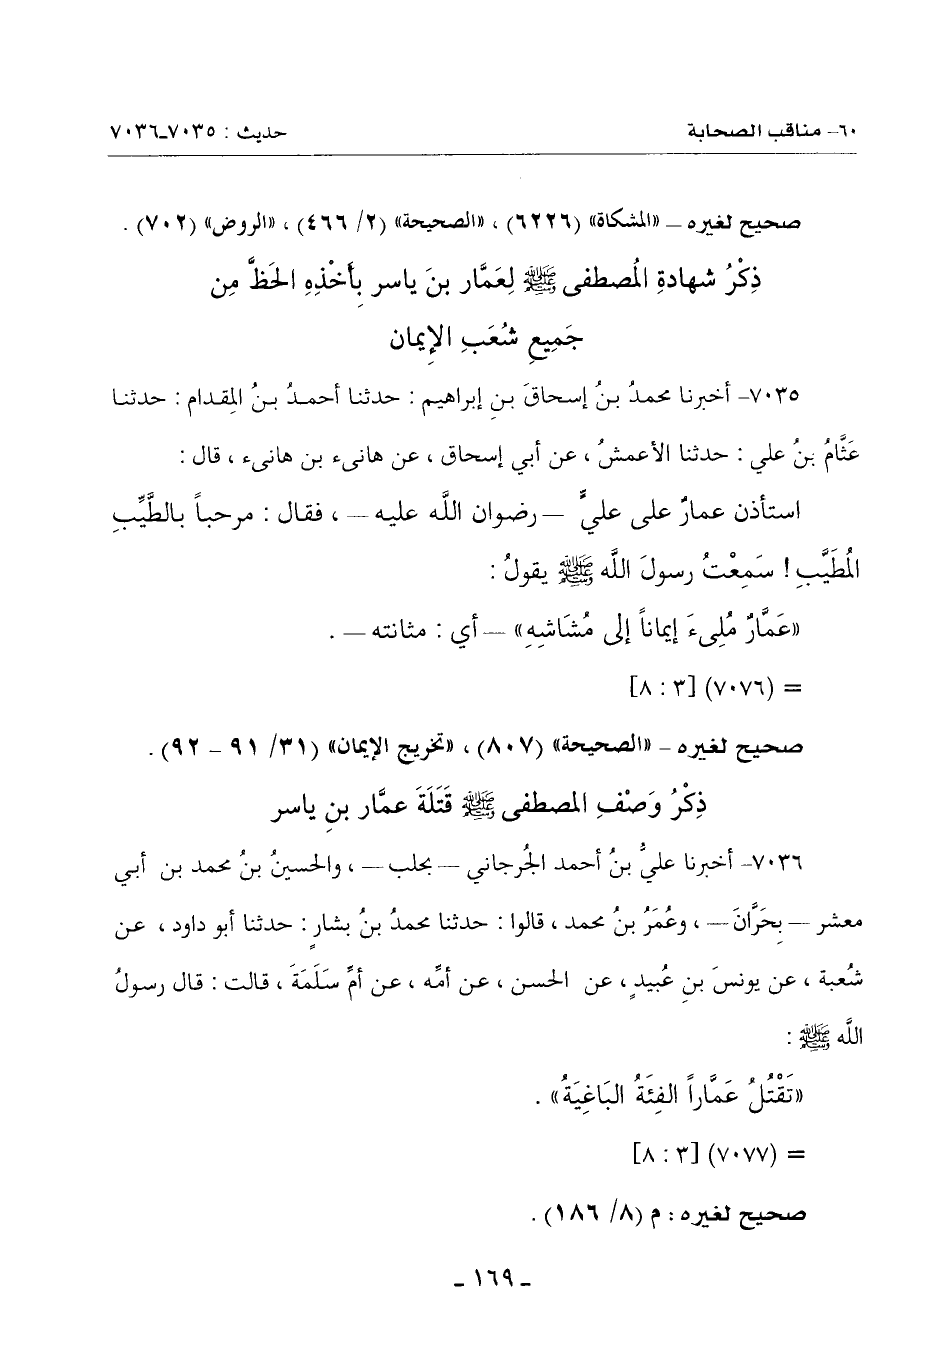 ٦٠- مناقب الصحابة حديث : ٧٠٣٥ـ٧٠٣٦
صحيح لغيره ـ «المشكاة» (٦٢٢٦) ، «الصحيحة» (٢/ ٤٦٦) ، «الروض» (٧٠٢) .
ذِكْرُ شهادةِ المُصطفى ﷺ لِعَمَّار بنَ ياسر بِأَخْذِهِ الحَظَّ مِن
جَمِيعِ شُعَبِ الإِيمَان
٧٠٣٥- أخبرنا محمدُ بنُ إسحاقَ بنِ إبراهيم : حدثنا أحمدُ بنُ المِقدام : حدثنا
عَثَّامُ بنُ علي : حدثنا الأعمشُ ، عن أبي إسحاق ، عن هانىء بن هانىء ، قال :
استأذن عمارٌ على عليٍّ —رضوان اللَّه عليه— ، فقال : مرحباً بالطَّيِّبِ
المُطَيَّبِ ! سَمِعْتُ رسولَ اللَّه ﷺ يقولُ :
«عَمَّارٌ مُلِىءَ إيماناً إلى مُشَاشِهِ» —أي : مثانته— .
= (٧٠٧٦) [٣ : ٨]
صحيح لغيره ـ «الصحيحة» (٨٠٧) ، «تخريج الإيمان» (٣١/ ٩١ ـ ٩٢) .
ذِكْرُ وَصْفِ المصطفى ﷺ قَتَلَةَ عمَّار بنِ ياسر
٧٠٣٦- أخبرنا عليُّ بنُ أحمد الجُرجاني —بحلب— ، والحسينُ بنُ محمد بن أبي
معشر —بِحَرَّانَ— ، وعُمَرُ بنُ محمد ، قالوا : حدثنا محمدُ بنُ بشارٍ : حدثنا أبو داود ، عن
شُعبة ، عن يونسَ بنِ عُبيدٍ ، عن الحسن ، عن أمِّه ، عن أمِّ سَلَمَةَ ، قالت : قال رسولُ
اللَّه ﷺ :
«تَقْتُلُ عَمَّاراً الفِئَةُ البَاغِيَةُ» .
= (٧٠٧٧) [٣ : ٨]
صحيح لغيره : م (٨/ ١٨٦) .
ـ ١٦٩ ـ